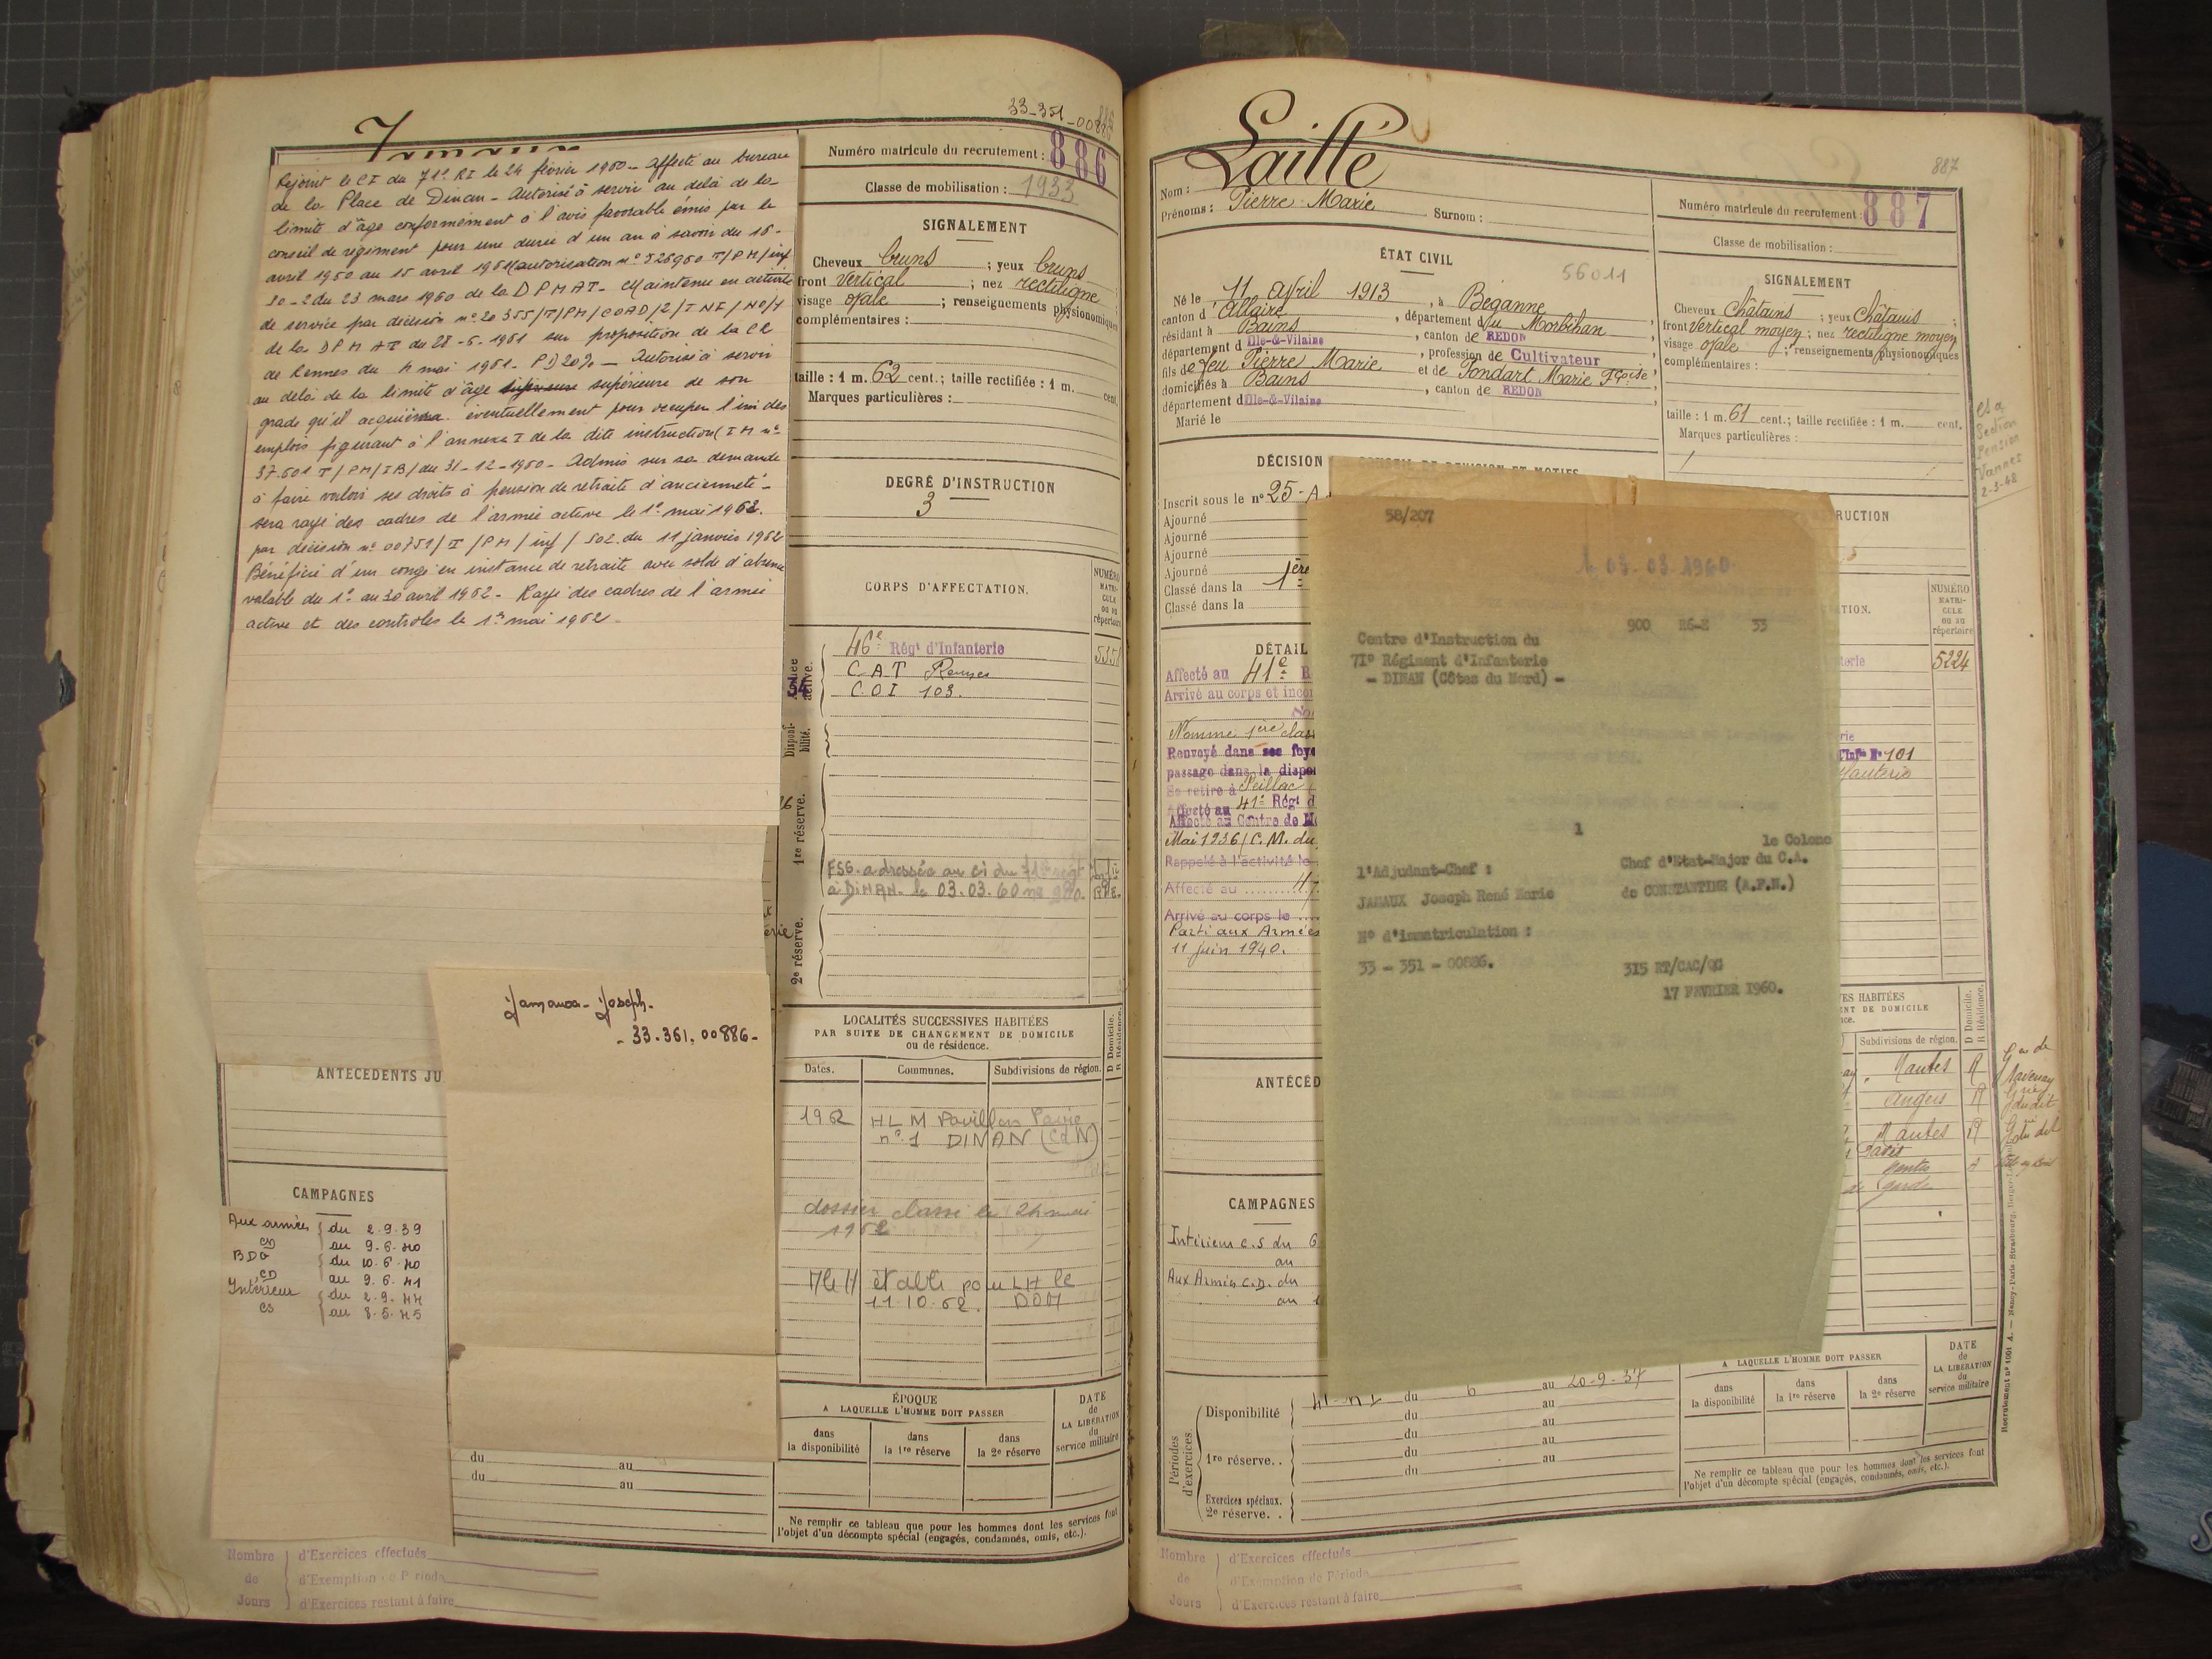 33-351-00886
Jamaux
Rejoint le CI du 71e RI le 24 février 1960 - affecté au bureau
de la Place de Dinan - Autorisé à servir au delà de la
limite d'âge conformément à l'avis favorable émis par le
conseil de régiment pour une durée d'un an à savoir du 16
avril 1960 au 15 avril 1961 (autorisation n° 526960 T/PM/inf
30-2 du 23 mars 1960 de la DPMAT - Maintenu en activité
de service par décision n° 20355/T/PM/COAD/2/INF/NO/4
de la DPMAT du 28-6-1961 sur proposition de la CR
de Rennes du 4 mai 1961 - PD20% - Autorisé à servir
au delà de la limite d'âge supérieure de son
grade qu'il acquierra éventuellement pour occuper l'un des
emplois figurant à l'annexe I de la dite instruction (IM n°
37.601 T/PM/IB/ du 31-12-1960 - Admis sur sa demande
à faire valoir ses droits à pension de retraite d'ancienneté -
sera rayé des cadres de l'armée active le 1er mai 1962.
par décision n° 00751/T/PM/inf/502 du 11 janvier 1962
Bénéficié d'un congé en instance de retraite avec solde d'absence
valable du 1er au 30 avril 1962 - Rayé des cadres de l'armée
active et des contrôles le 1er mai 1962 -
Jamaux - Joseph -
- 33.361.00886 -
ANTÉCÉDENTS JU
CAMPAGNES
Aux armées { du 2-9-39
CD au 9-6-40
BDG { du 10-6-40
CD au 9-6-41
Intérieur { du 2-9-44
CS au 8-5-45
du au
du au
Nombre d'Exercices effectués
de d'Exemption de Période
Jours d'Exercices restant à faire
Numéro matricule du recrutement : 886
Classe de mobilisation : 1933
SIGNALEMENT
Cheveux bruns ; yeux bruns
front vertical ; nez rectiligne
visage ovale ; renseignements physionomiques
complémentaires :
taille : 1 m. 62 cent.; taille rectifiée : 1 m. cent.
Marques particulières :
DEGRÉ D'INSTRUCTION
3
CORPS D'AFFECTATION.
NUMÉRO
MATRI-
CULE
ou au
répertoire
active.
46e Régt d'Infanterie
C A T Rennes
C.O.I 103.
Disponi-
bilité.
1re réserve.
FSG. adressée au CI du 71e régt
à DINAN. le 03.03.60
2e réserve.
LOCALITÉS SUCCESSIVES HABITÉES
PAR SUITE DE CHANGEMENT DE DOMICILE
ou de résidence.
D Domicile.
R Résidence.
Dates. Communes. Subdivisions de région.
1962 HLM Pavillon Pavie
n° 1 DINAN (CdN)
dossier classé le 24 mai
1962
établi pour LH le
11.10.62.
ÉPOQUE
A LAQUELLE L'HOMME DOIT PASSER
dans la disponibilité
dans la 1re réserve
dans la 2e réserve
DATE de LA LIBÉRATION du service militaire
Ne remplir ce tableau que pour les hommes dont les services font
l'objet d'un décompte spécial (engagés, condamnés, omis, etc.).
887
Nom : Laillé
Prénoms : Pierre Marie Surnom :
Numéro matricule du recrutement : 887
Classe de mobilisation :
ÉTAT CIVIL
56011
Né le 11 avril 1913, à Béganne
canton d'Allaire, département du Morbihan
résidant à Bains, canton de REDON
département d'Ille-&-Vilaine, profession de Cultivateur
fils de feu Pierre Marie et de Tondart Marie Fçoise
domiciliés à Bains, canton de REDON
département d'Ille-&-Vilaine
Marié le
SIGNALEMENT
Cheveux châtains ; yeux châtains ;
front vertical moyen ; nez rectiligne moyen
visage ovale ; renseignements physionomiques
complémentaires :
taille : 1 m. 61 cent.; taille rectifiée : 1 m. cent.
Marques particulières :
Section
Pension
Vannes
2-3-48
DÉCISION
Inscrit sous le n° 25-A
Ajourné
Ajourné
Ajourné
Ajourné
Classé dans la 1ère
Classé dans la
DÉTAIL
Affecté au 41e R
Arrivé au corps et incor
Nommé 1ère class
Renvoyé dans ses foye
passage dans la dispo
Se retire à Peillac
Affecté au 41e Régt d
Affecté au Centre de M
Mai 1936 (C.M. du
Rappelé à l'activité le
Affecté au
Arrivé au corps le
Parti aux Armées
11 juin 1940.
58/207
03.03.1960
Centre d'Instruction du
71° Régiment d'Infanterie
- DINAN (Côtes du Nord) -
1
le Colone
l'Adjudant-Chef :
Chef d'Etat-Major du C.A.
JAMAUX Joseph René Marie
de CONSTANTINE (A.F.N.)
N° d'immatriculation :
33 - 351 - 00886.
315 RT/CAC/OG
17 FEVRIER 1960.
RUCTION
ATION.
NUMÉRO
MATRI-
CULE
ou au
répertoire
5224
101
ANTÉCÉD
CAMPAGNES
Intérieur C.S du 6
au
Aux Armées C.D. du
au
Subdivisions de région.
D Domicile.
R Résidence.
Nantes R
Angers R
Nantes R
Paris
Périodes d'exercices
Disponibilité du 6 au 20-9-37
du au
du au
1re réserve. . du au
du au
Exercices spéciaux.
2e réserve. .
A LAQUELLE L'HOMME DOIT PASSER
dans la disponibilité
dans la 1re réserve
dans la 2e réserve
DATE de LA LIBÉRATION du service militaire
Ne remplir ce tableau que pour les hommes dont les services font
l'objet d'un décompte spécial (engagés, condamnés, omis, etc.).
Nombre d'Exercices effectués
de d'Exemption de Période
Jours d'Exercices restant à faire